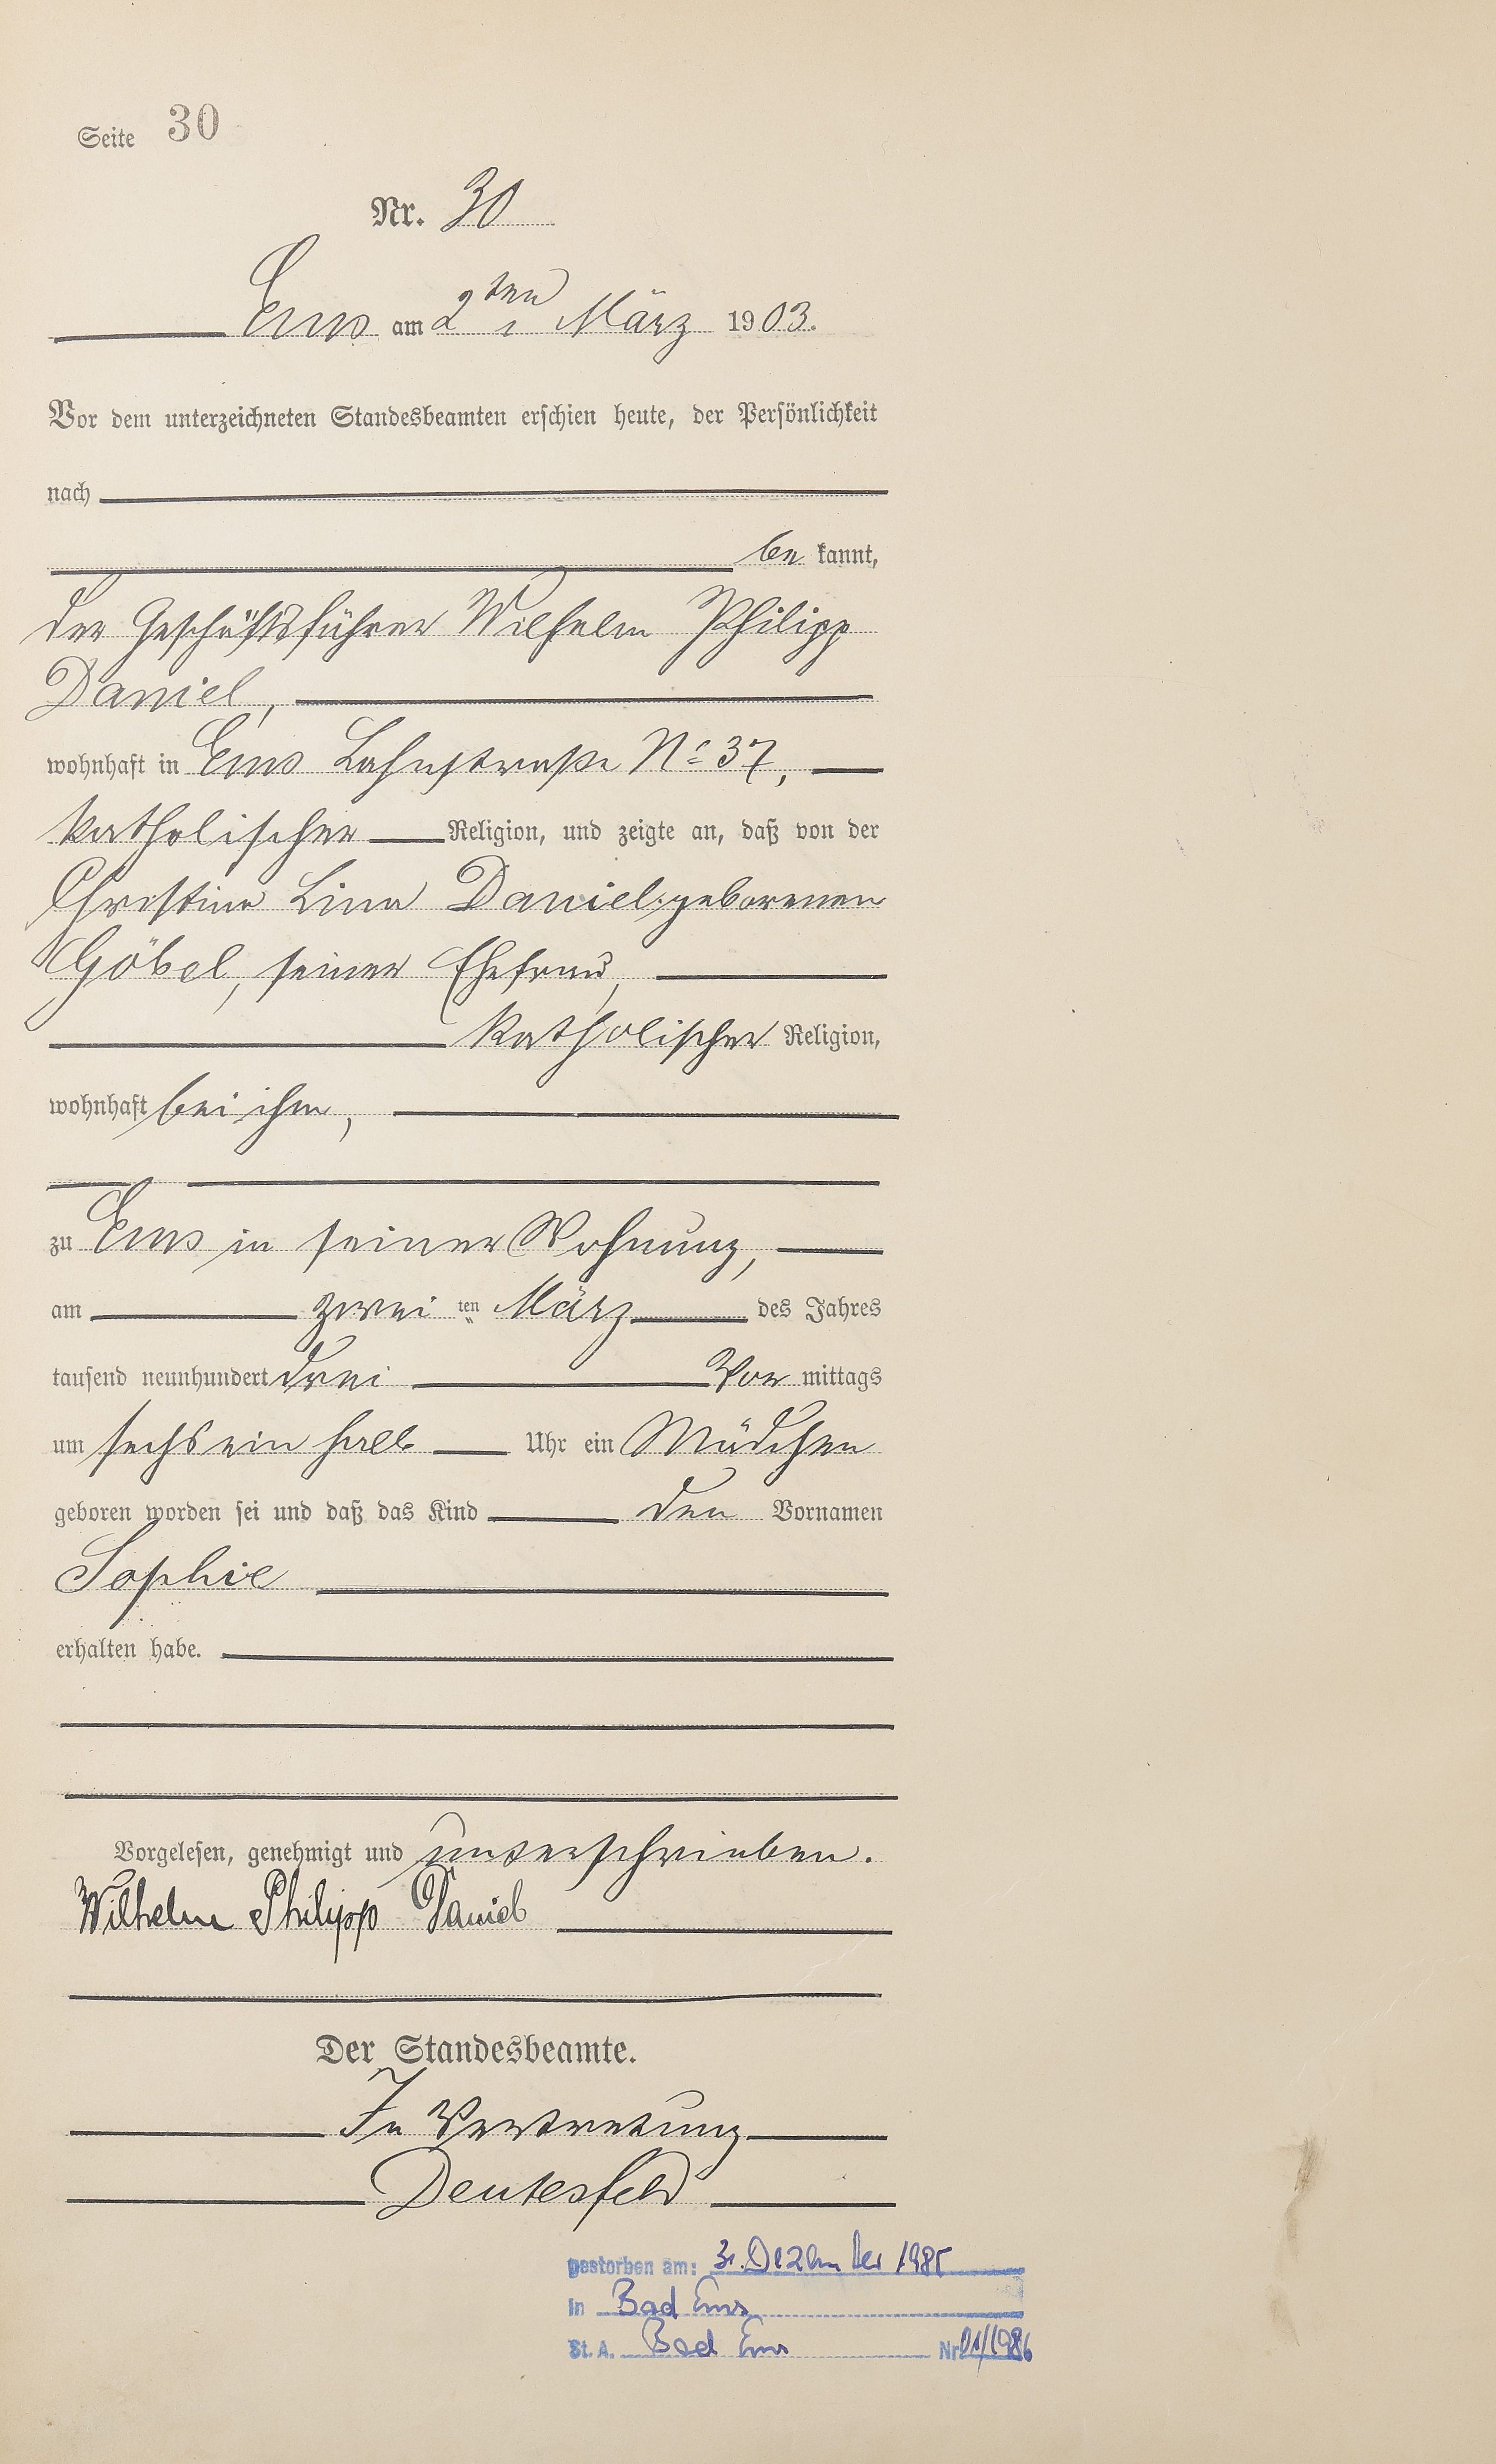 Seite 30
Nr. 30
Ems am 2ten März 1903.
Vor dem unterzeichneten Standesbeamten erschien heute, der Persönlichkeit
nach
be kannt,
der Geschäftsführer Wilhelm Philipp
Daniel,
wohnhaft in Ems Lahnstraße No 37,
katholischer Religion, und zeigte an, daß von der
Christine Lina Daniel geborenen
Göbel, seiner Ehefrau,
katholischer Religion,
wohnhaft bei ihm,
zu Ems in seiner Wohnung,
am zwei ten März des Jahres
tausend neunhundert drei Vor mittags
um sechs ein halb Uhr ein Mädchen
geboren worden sei und daß das Kind den Vornamen
Sophie
erhalten habe.
Vorgelesen, genehmigt und unterschrieben.
Wilhelm Philipp Daniel
Der Standesbeamte.
In Vertretung
Deutesfeld
gestorben am: 31. Dezember 1985
in Bad Ems
St. A. Bad Ems Nr. 01/1986